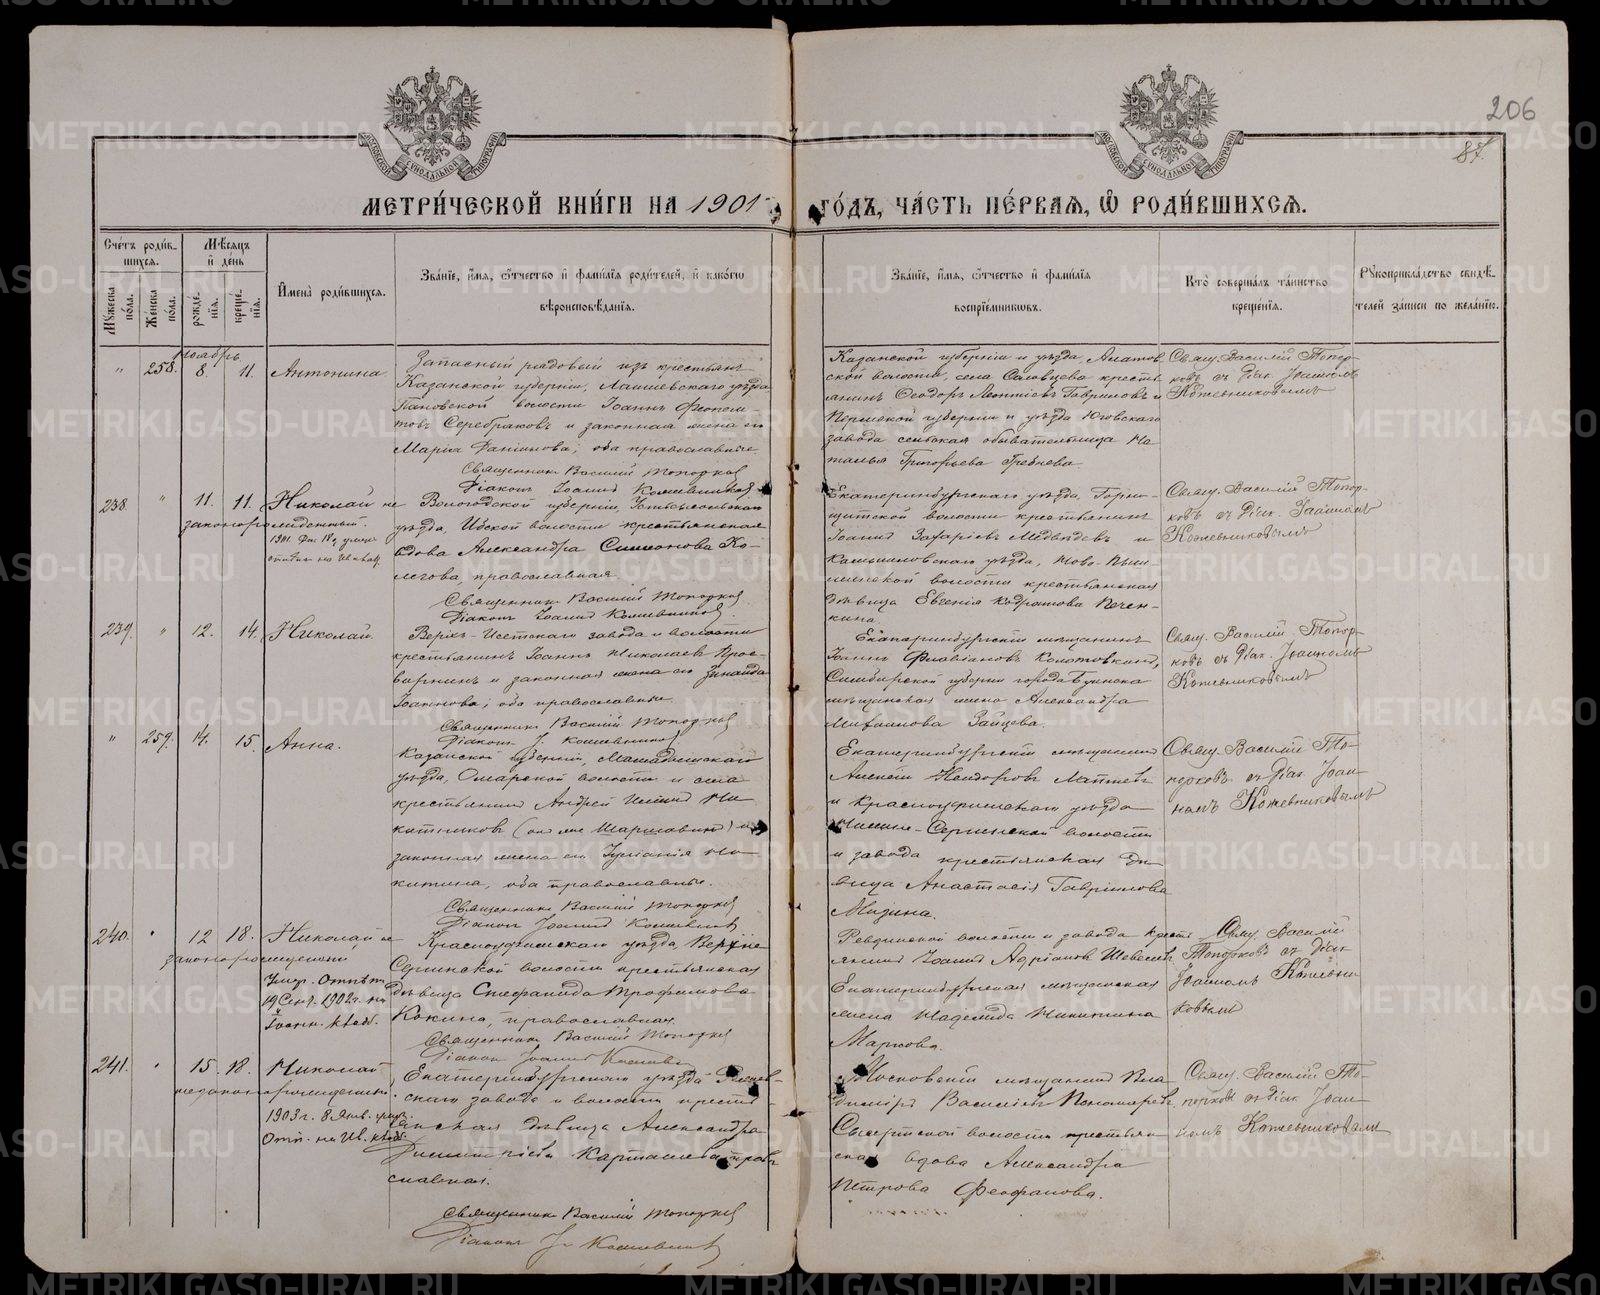 206
87.
МЕТРИ́ЧЕСКОЙ КНИ́ГИ НА 1901
ГО́ДЪ, ЧА́СТЬ ПЕ́РВАѦ, Ѡ РОДИ́ВШИХСѦ.
Сче́тъ роди́в-
шихся.
Мѣ́сяцъ
и де́нь
Мꙋ́жеска по́ла.
Же́нска по́ла.
рожде́нїя.
креще́нїя.
И́мена̀ роди́вшихся.
Зва́нїе, и́мя, ѻ́тчество и фами́лїя роди́телей, и како́гѡ
вѣроисповѣ́данїя.
Зва́нїе, и́мя, ѻ́тчество и фами́лїя
воспрїе́мниковъ.
Кто̀ соверша́лъ та́инство
креще́нїя.
Рꙋкоприкла́дство свидѣ́-
телей за́писи по жела́нїю.
ноябрь
" 258. 8. 11. Антонина.
Запасный рядовый изъ крестьянъ
Казанской губерніи, Лаишевскаго уѣзда
Пановской волости Іоаннъ
Серебряковъ и законная жена его
Марія оба православные
Священникъ Василій Топорков
Діаконъ Іоаннъ Кожевников
Казанской губерніи и уѣзда,
ской волости, села кресть-
янинъ Ѳеодоръ Леонтіевъ Гавриловъ и
Пермской губерніи и уѣзда Юговскаго
завода сельская обывательница На-
талья Григорьева Гребнева.
Свящ. Василій Топор-
ковъ съ Діак. Іоанномъ
Кожевниковымъ
238. " 11. 11. Николай не
законорожденный.
Вологодской губерніи, Устьсысольскаго
уѣзда, Ибской волости крестьянская
вдова Александра Симонова Ко-
легова, православная.
Священникъ Василій Топорков
Діаконъ Іоаннъ Кожевников
Екатеринбургскаго уѣзда, Горно-
щитской волости крестьянинъ
Іоаннъ Захаріевъ Медвѣдевъ и
Камышловскаго уѣзда, Ново-Пыш-
минской волости крестьянская
дѣвица Евгенія Кодратова Печен-
кина.
Свящ. Василій Топор-
ковъ съ Діак. Іоанномъ
Кожевниковымъ
239. " 12. 14. Николай.
Верхъ-Исетскаго завода и волости
крестьянинъ Іоаннъ Николаевъ Прос-
вирнинъ и законная жена его Зинаида
Іоаннова, оба православные
Священникъ Василій Топорков
Діаконъ І. Кожевников
Екатеринбургскій мѣщанинъ
Іоаннъ Флавіановъ
Симбирской губерн. города Буинска
мѣщанская жена Александра
Зайцева.
Свящ. Василій Топор-
ковъ съ Діак. Іоанномъ
Кожевниковымъ
" 259. 14. 15. Анна.
Казанской губерніи, Мамадышскаго
уѣзда, Омарской волости и села
крестьянинъ Андрей
(онъ же ) и
законная жена его Іуліанія Ни-
китина, оба православные.
Священникъ Василій Топорков
Діаконъ Іоаннъ Кожевников
Екатеринбургскій мѣщанинъ
Алексій
и Красноуфимскаго уѣзда
Нижне-Сергинской волости
и завода крестьянская дѣ-
вица Анастасія Гавріилова
Мизина.
Свящ. Василій То-
порковъ съ Діак. Іоан-
номъ Кожевниковымъ
240. " 12 18. Николай не
законорожденный
Умер. Отпѣт
19 Сент. 1902 г. на
Іоанн. кладб.
Красноуфимскаго уѣзда, Верхне
Сергинской волости крестьянская
дѣвица Стефанида Трофимова
Кокина, православная.
Священникъ Василій Топорков
Діаконъ Іоаннъ Кожевн
Ревдинской волости и завода кресть-
янинъ Іоаннъ Адріановъ Шевелевъ
Екатеринбургская мѣщанская
жена Надежда Никитина
Маркова.
Свящ. Василій
Топорковъ съ Діак
Іоанномъ Кожевни
ковымъ
241. " 15. 18. Николай
незаконорожденный.
1903 г. 8 Янв. умер.
Отп. на Ив. кладб.
Екатеринбургскаго уѣзда
скаго завода и волости кресть-
янская дѣвица Александра
Карташева, право
славная.
Священникъ Василій Топорков
Діаконъ І. Кожевников
Московскій мѣщанинъ Вла-
диміръ Васильевъ Пономаревъ,
Сысертской волости крестьян
ская вдова Александра
Петрова Ѳеофанова.
Свящ. Василій То-
порков съ Діак Іоан
номъ Кожевниковым